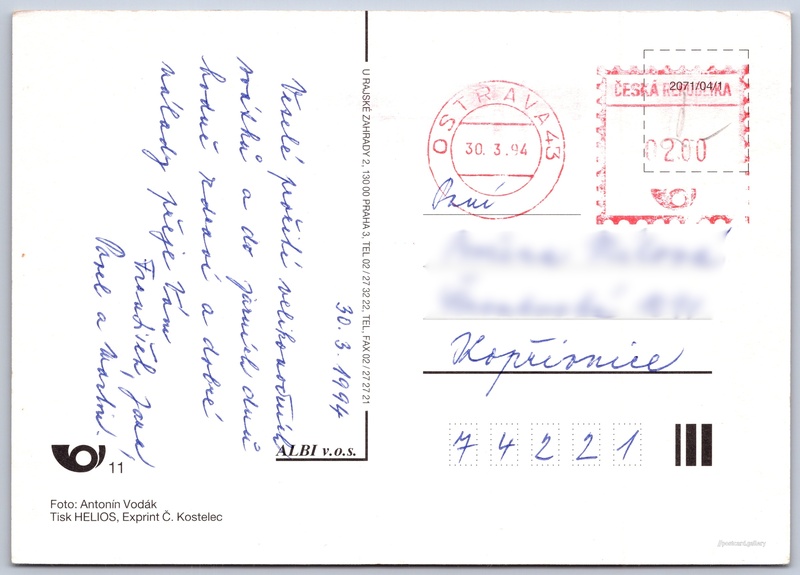 30. 3. 1994
Veselé prožití velikonočních
svátků a do jarních dnů
hodně zdraví a dobré
nálady přeje Vám
František, Jana,
Pavel a Martin.
U RAJSKÉ ZAHRADY 2, 130 00 PRAHA 3, TEL 02 / 27 32 22, TEL. FAX 02 / 27 27 21
ALBI v.o.s.
11
Foto: Antonín Vodák
Tisk HELIOS, Exprint Č. Kostelec
OSTRAVA 43
30. 3. 94
ČESKÁ REPUBLIKA
2071/04/1
02.00
Paní
Kopřivnice
74221